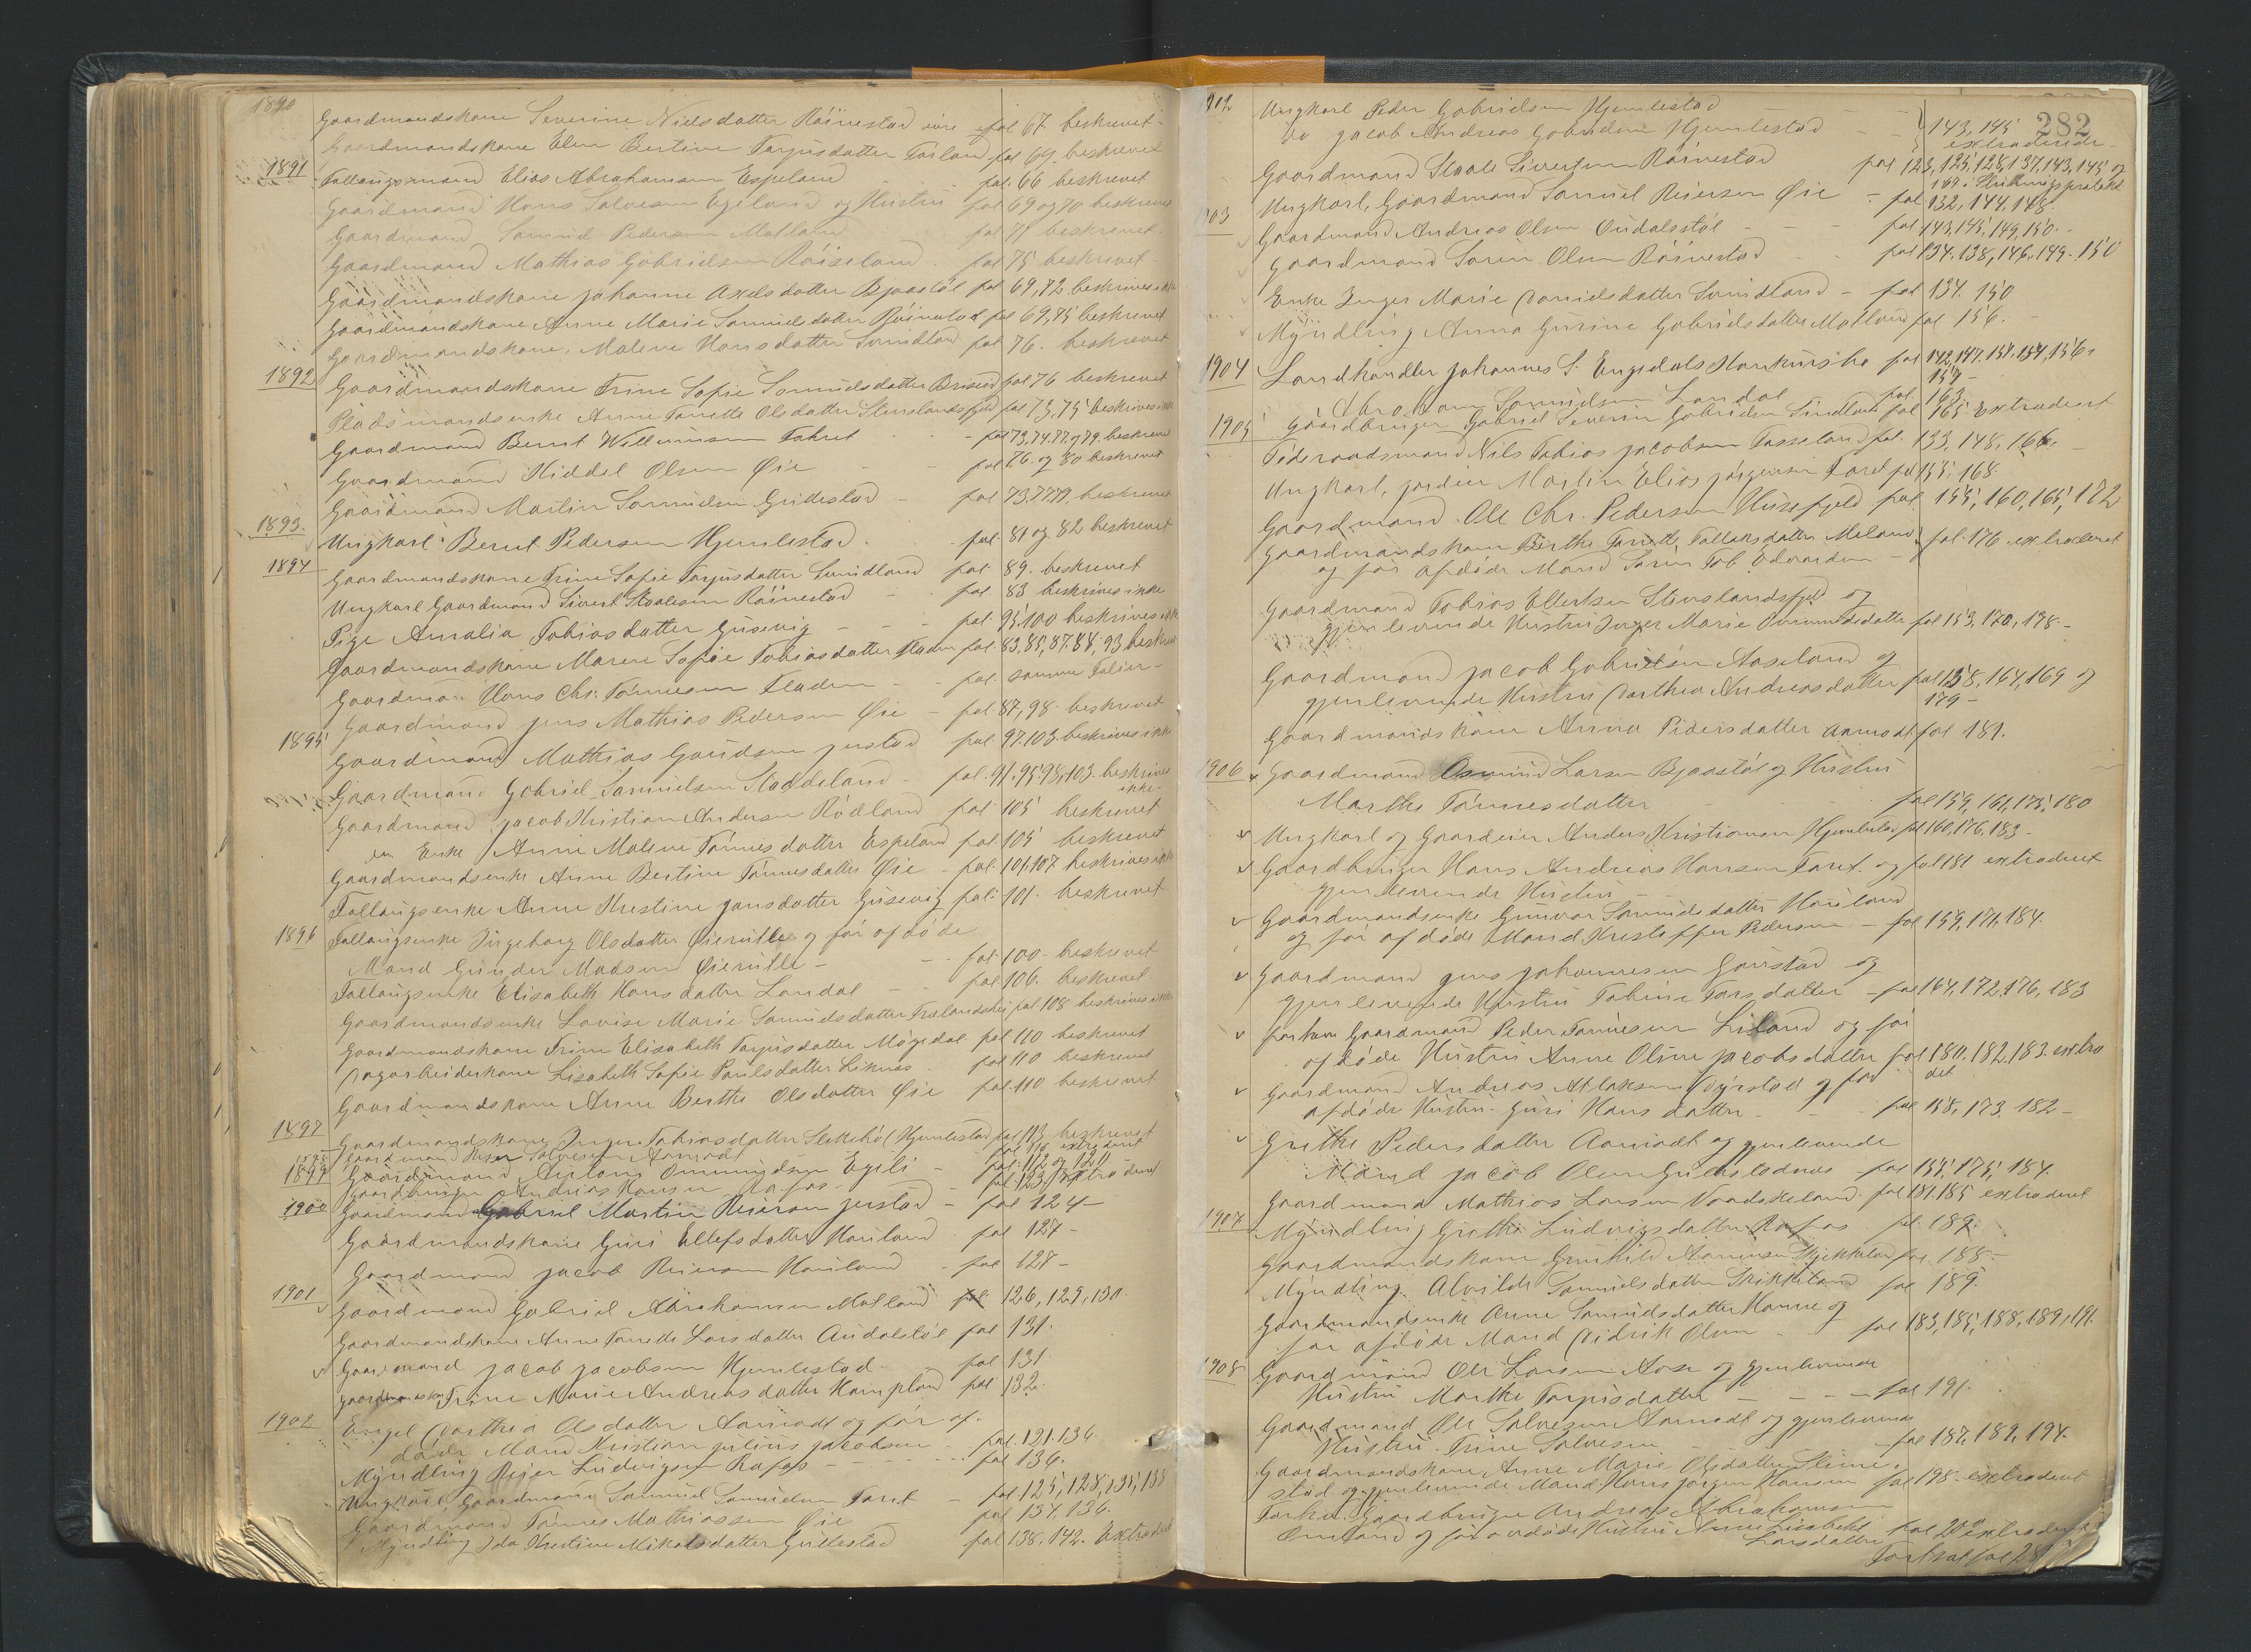 1890
Gaardmandskone Severine Nielsdatter Röinestad øvre fol 67 beskrevet
Gaardmandskone Elen Bertine Tarjusdatter Tarland fol 69. beskrevet
1891
Fallaugsmand Elias Abrahamsen Espeland fol. 66 beskrevet
Gaardmand Hans Salvesen Egeland og Hustru fol 69 og 70 beskrevet
Gaardmand Samuel Pedersen Motland fol 71 beskrevet.
Gaardmand Mathias Gabrielsen Röiseland fol 75 beskrevet
Gaardmandskone Johanne Axelsdatter Bjaastöl fol 69,72 beskrives ikke
Gaardmandskone Anne Marie Samuelsdatter Röinestad fol 69,75 beskrevet
Gaardmandskone, Malene Hansdatter Sundland fol 76. beskrevet
1892
Gaardmandskone Trine Sofie Samuelsdatter fol 76 beskrevet
Pladsmandsenke Anne Tonette Olsdatter Stenslandsfjeld fol 73,75 beskrives ikke
Gaardmand Bernt Willumsen Fahret fol 73,74,77,79. beskrevet
Gaardmand Kiddel Olsen Øie fol 76. og 80 beskrevet
Gaardmand Martin Samuelsen Gullestad fol 73,77,79, beskrevet
1893.
Ungkarl Bernt Pedersen Hjemlestad. fol. 81 og 82 beskrevet
1894
Gaardmandskone Trine Sofie Tarjusdatter Sundland fol 89. beskrevet
Ungkarl Gaardmand Sivert Staalesen Röinestad fol 83 beskrives ikke
Pige Amalia Tobiasdatter Gusevig fol. 95,100 beskrives ikke
Gaardmandskone Maren Sofie Tobiasdatter Fladen fol. 83,85,87,84,93 beskrevet
Gaardman Hans Chr. Tønnesen Fladen fol. samme Folier
Gaardmand Jens Mathias Pedersen Øie fol 87,98. beskrevet
1895
Gaardmand Mathias Gaudsen Jerstad fol 97.103. beskrives ikke
Gaardmand Gabriel Samuelsen Stoddeland fol. 91.95.98,103. beskrives
ikke
Gaardmand Jacob Kristian Andersen Rödland fol 105 beskrevet
en Enke Anne Malene Tönnesdatter Espeland fol 105 beskrevet
Gaardmandsenke Anne Bertine Tönnesdatter Øie fol. 101,107 beskrives ikke
Fallaugsenke Anne Kristine Jansdatter Gusevig fol: 101. beskrevet
1896
Fallaugsenke Ingeborg Olsdatter Øierutle og för afdöde
Mand Gunder Madsen Øierutle fol. 100 beskrevet
Fallaugsenke Elisabeth Hansdatter Landal fol 106. beskrevet
Gaardmandsenke Lovise Marie Samuelsdatter Trælandshei fol 108 beskrives ikke
Gaardmandskone Trine Elisabeth Tarjusdatter Mögedal fol 110 beskrevet
Dagarbeiderkone Lisabeth Sofie Paulsdatter Liknes fol 110 beskrevet
Gaardmandskone Anne Berthe Olsdatter Øie fol. 110 beskrevet
1897
Gaardmandskone Inger Tobiasdatter Slekebö (Hjemlestad fol 113 beskrevet
1898
Gaardmand Reier Salvesen Aamodt fol 116 extraderet
1899
Gaardmand Antoni Ommundsen Egeli fol. 112 og 121
Gaardbruger Andreas Hansen Rafos fol 123, extraderet
1900
Gaardmand Gabriel Martin Reiersen Jerstad fol 124
Gaardmandskone Guri Ellefsdatter Houland. fol 127
Gaardmand Jacob Reiersen Houland fol 127
1901
Gaardmand Gabriel Abrahamsen Motland fol 126, 129,130.
Gaardmandskone Anne Tonette Larsdatter Audalstöl fol 131.
Gaardmand Jacob Jacobsen Hjemlestad fol 131
Gaardmandskone Trine Marie Andreasdatter fol 132.
1902
Engel Dorthea Olsdatter Aamodt og för af-
döde Mand Kristian Julius Jacobsen fol. 131,136
Myndling Reier Ludvigsen Rafos fol 136.
Ungkarl, Gaardmand Samuel Samuelsen Faret fol. 125,128,135,138
Gaardmand Tönnes Mathiassen Øie fol 134.136.
Myndling Ida Kristine Mikalsdatter Gullestad fol 138,142. Extraderet
282
1902
Ungkarl Peder Gabrielsen Hjemlestad
do Jacob Andreas Gabrielsen Hjemlestad 143,145
extraderede
Gaardmand Staale Sivertsen Röinestad fol 123,125,128,137,143,145 og
169 i Skiftningsprotokol
Ungkarl, Gaardmand Samuel Reiersen Øie fol 132,144,148.
1903
Gaardmand Andreas Olsen Oudalsstöl fol 143,145,149,150.
Gaardmand Sören Olsen Röinestad fol 134.138,146.149.150
Enke Inger Marie Danielsdatter Sundland fol 134. 150
Myndling Anna Gurine Gabrielsdatter Motland fol 156.
1904
Landhandler Johannes S. Engedals Konkursbo fol 142,147.151.154,156,
157
Abraham Samuelsen Landal fol. 163
1905
Gaardbruger Gabriel Severin Gabrielsen Sundland fol 165 Extraderet
Föderaadsmand Nils Tobias Jacobsen Tosseland fol. 133,148,166
Ungkarl, Martin Elias Jörgensen Faret fol 155,168
Gaardmand Ole Chr. Pedersen Husefjeld fol. 155,160,165,172
Gaardmandskone Berthe Tonette Tollaksdatter Meland fol. 176 extraderet
og för afdöde Mand Sören Tob. Edvardsen
Gaardmand Tobias Ellertsen Stenslandsfjeld og
gjenlevende Hustru Inger Marie Ommundsdatter fol 153,170,178
Gaardmand Jacob Gabrielsen Aaseland og
gjenlevende Hustru Dorthea Andreasdatter fol 158,164,169 og
179
Gaardmandskone Anna Pedersdatter Aamodt fol 181.
1906
Gaardmand Osmund Larsen Bjaastöl og Hustru
Marthe Tönnesdatter fol 159,161,175,180
Ungkarl og Gaardeier Anders Kristiansen Hjemlestad fol 160,176,183
Gaardbruger Hans Andreas Hansen Faret. og fol 181 extraderet
gjenlevende Hustru
Gaardmandsenke Gunvor Samuelsdatter Houland
og för afdöde Mand Kristoffer Pedersen fol 159,171,184.
Gaardmand Jens Johannesen Goustad og
gjenlevende Hustru Tobine Larsdatter fol 164,172,176,183
forhen Gaardmand Peder Tönnesen Liland og för
afdöde Hustru Anne Oline Jacobsdatter fol 180.182.183. extra
det
Gaardmand Andreas Atlaksen Dyrstad og för
afdöde Hustru Guri Hansdatter fol 158,173,182
Grethe Pedersdatter Aamodt og gjenlevende
Mand Jacob Olsen Gulestadnes fol 155,175,184.
Gaardmand Mathias Larsen Noadskeland. fol 181.185 extraderet
1907
Myndling Grethe Ludvigsdatter Rafos fol. 187.
Gaardmandskone Gunhild Aanensen fol 188
Myndling Alvilde Samuelsdatter Skikkeland fol 189.
Gaardmandsenke Anne Samuelsdatter Hamre og
för afdöde Mand Didrik Olsen fol 183,185,188,189,191.
1908
Gaardmand Ole Larsen Aase og gjenlevende
Hustru Marthe Tarjusdatter fol 191.
Gaardmand Ole Salvesen Aamodt og gjenlevende
Hustru Trine Salvesen fol 187,189,194.
Gaardmandskone Anne Marie Olsdatter
stad og gjenlevende Mand Hans Jörgen Hansen fol 198 extraderet
Forhv. Gaardbruger Andreas Abrahamsen
Omland og för afdöde Hustru Anne Lisabeth
Larsdatter fol extraderet
Fortsat fol 28